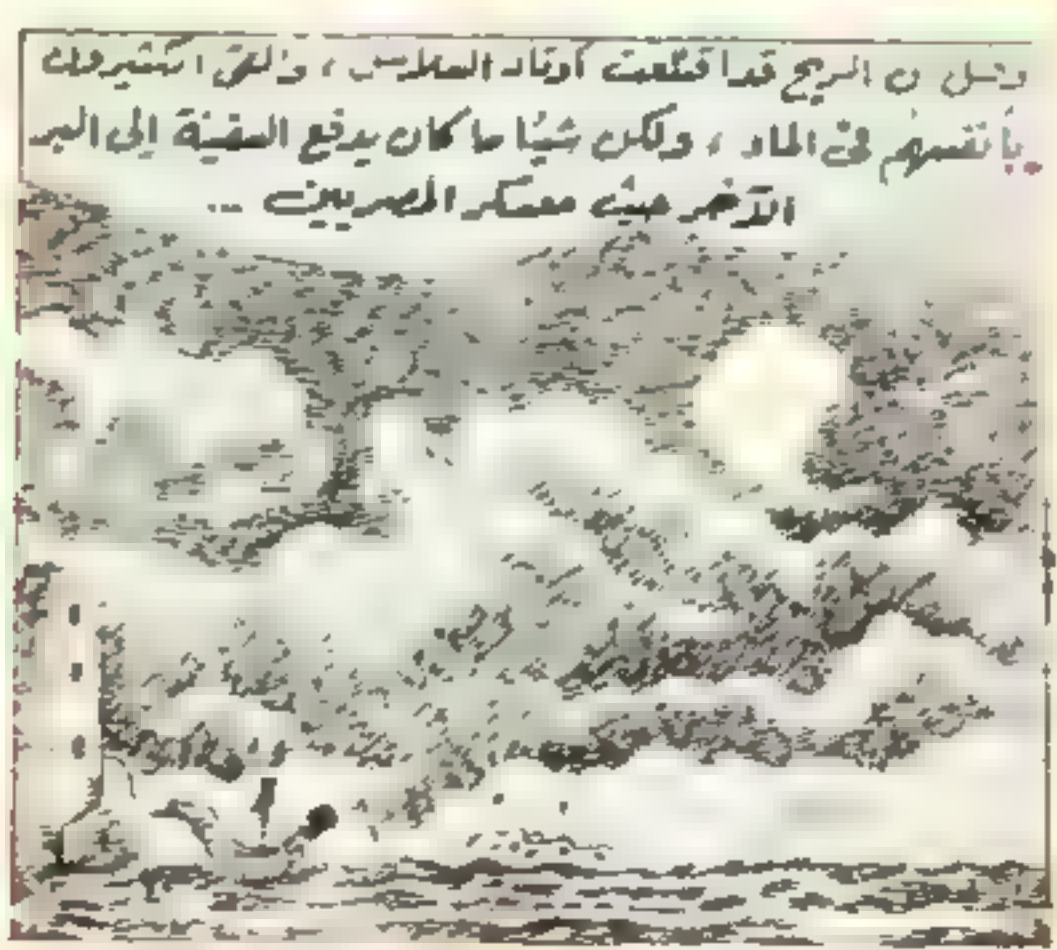 الريح قد اقتلعت أوتاد السلاسل ، وألقى الكثيرون
بأنفسهم فى الماء ، ولكن شيئا ما كان يدفع السفينة إلى البر
الآخر حيث معسكر المصريين ...